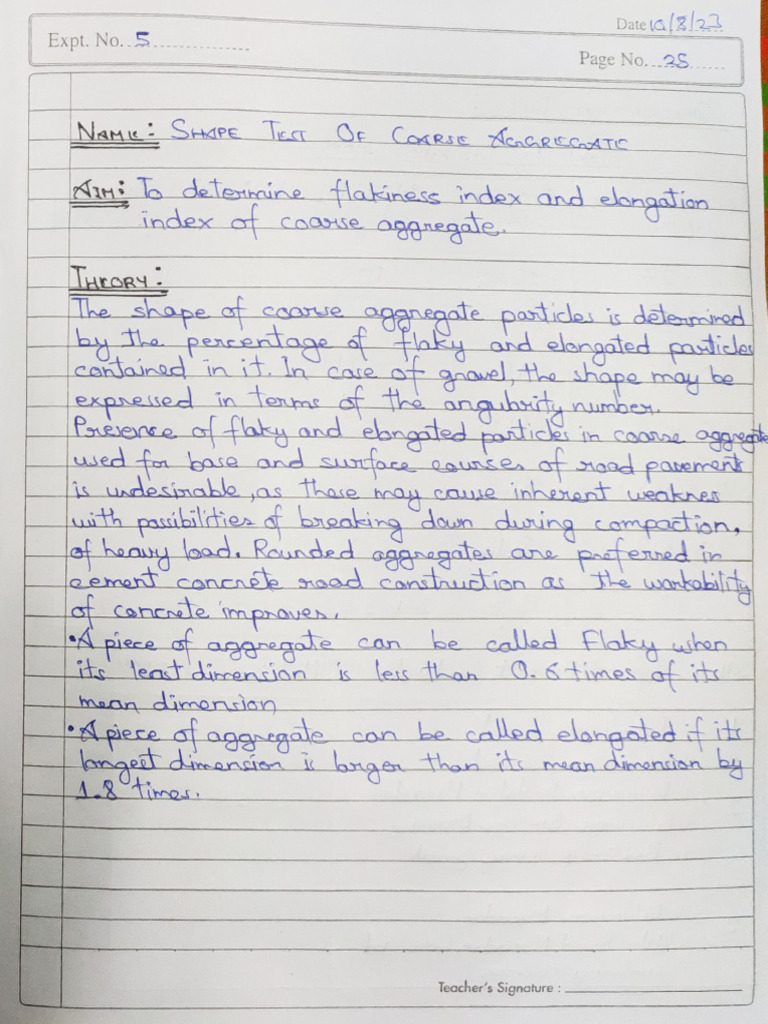 Date 10/8/23
Expt. No. 5
Page No. 25
NAME: SHAPE TEST OF COARSE AGGREGATE
AIM: To determine flakiness index and elongation
index of coarse aggregate.
THEORY:
The shape of coarse aggregate particles is determined
by the percentage of flaky and elongated particles
contained in it. In case of gravel, the shape may be
expressed in terms of the angularity number.
Presence of flaky and elongated particles in coarse aggregate
used for base and surface courses of road pavement
is undesirable, as these may cause inherent weaknes
with possibilities of breaking down during compaction,
of heavy load. Rounded aggregates are preferred in
cement concrete road construction as the workability
of concrete improves.
• A piece of aggregate can be called Flaky when
its least dimension is less than 0.6 times of its
mean dimension
• A piece of aggregate can be called elongated if its
longest dimension is larger than its mean dimension by
1.8 times.
Teacher's Signature :